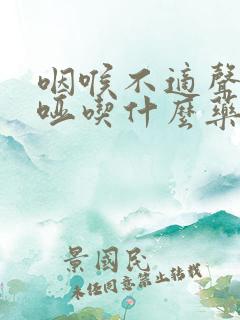 咽喉不適聲
啞喫什麽藥
景國民
未经同意禁止转载